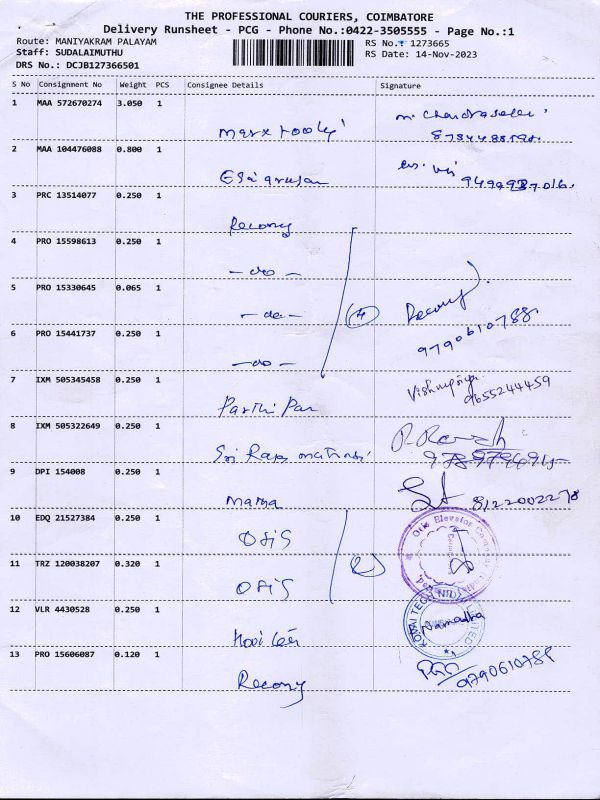 THE PROFESSIONAL COURIERS, COIMBATORE
Delivery Runsheet - PCG - Phone No.:0422-3505555 - Page No.:1
Route: MANIYAKRAM PALAYAM
RS No.: 1273665
Staff: SUDALAIMUTHU
RS Date: 14-Nov-2023
DRS No.: DCJB127366501
S No Consignment No Weight PCS Consignee Details Signature
1 MAA 572670274 3.050 1
2 MAA 104476088 0.800 1
3 PRC 13514077 0.250 1
Recony
4 PRO 15598613 0.250 1
- do -
5 PRO 15330645 0.065 1
- do - (4) Recony
6 PRO 15441737 0.250 1 9790610788
- do -
7 IXM 505345458 0.250 1 Vishnupriya
Parthi Pan 9655244459
8 IXM 505322649 0.250 1
9 DPI 154008 0.250 1
8122002278
10 EDQ 21527384 0.250 1 Otis Elevator Company
Otis
11 TRZ 120038207 0.320 1
Otis
12 VLR 4430528 0.250 1 Namadha
13 PRO 15606087 0.120 1
Recony 9790610788